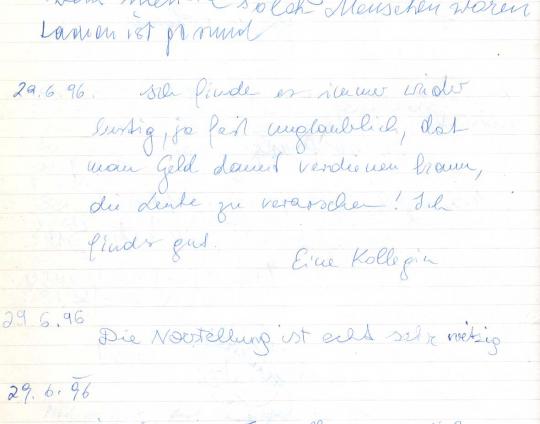 solch Menschen wären
Lachen ist gesund
29.6.96. Ich finde es immer wieder
lustig, ja fast unglaublich, daß
man Geld damit verdienen kann,
die Leute zu verarschen! Ich
finds gut.
Eine Kollegin
29 6.96 Die Vorstellung ist echt sehr witzig
29.6.96